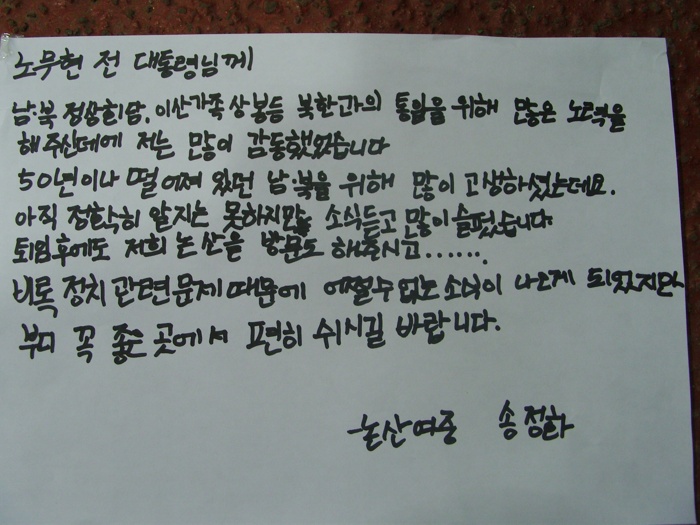 노무현 전 대통령님께
남·북 정상회담, 이산가족 상봉등 북한과의 통일을 위해 많은 노력을
해주신데에 저는 많이 감동했었습니다
50년이나 떨어져 있던 남·북을 위해 많이 고생하셨는데요.
아직 정확히 알지는 못하지만 소식듣고 많이 슬펐습니다.
퇴임후에도 저희 논산을 방문도 해주시고.......
비록 정치 관련문제 때문에 어쩔수 없는 소식이 나오게 되었지만
부디 꼭 좋은 곳에서 편히 쉬시길 바랍니다.
논산여중 송정하